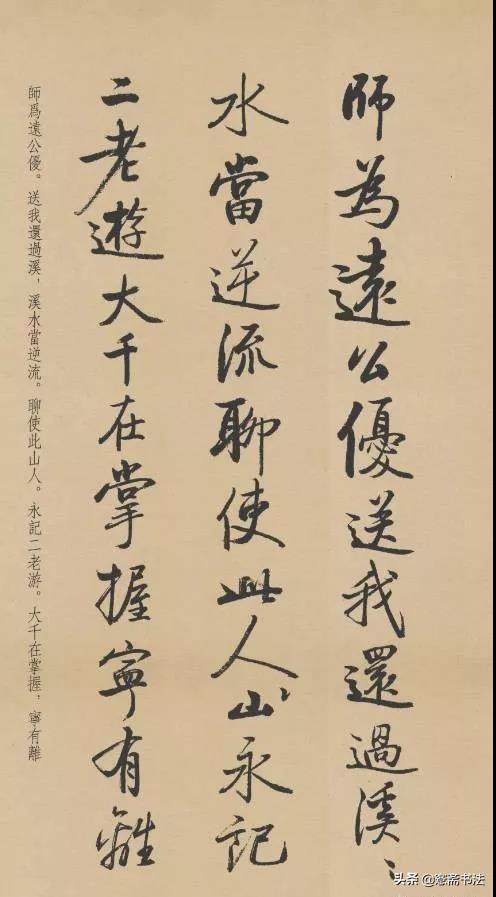 師為遠公優送我還過溪〻
水當逆流聊使此人山永記
二老遊大千在掌握寧有離
師爲遠公優。送我還過溪，溪水當逆流。聊使此山人。永記二老游。大千在掌握，寧有離
头条 @愙斋书法